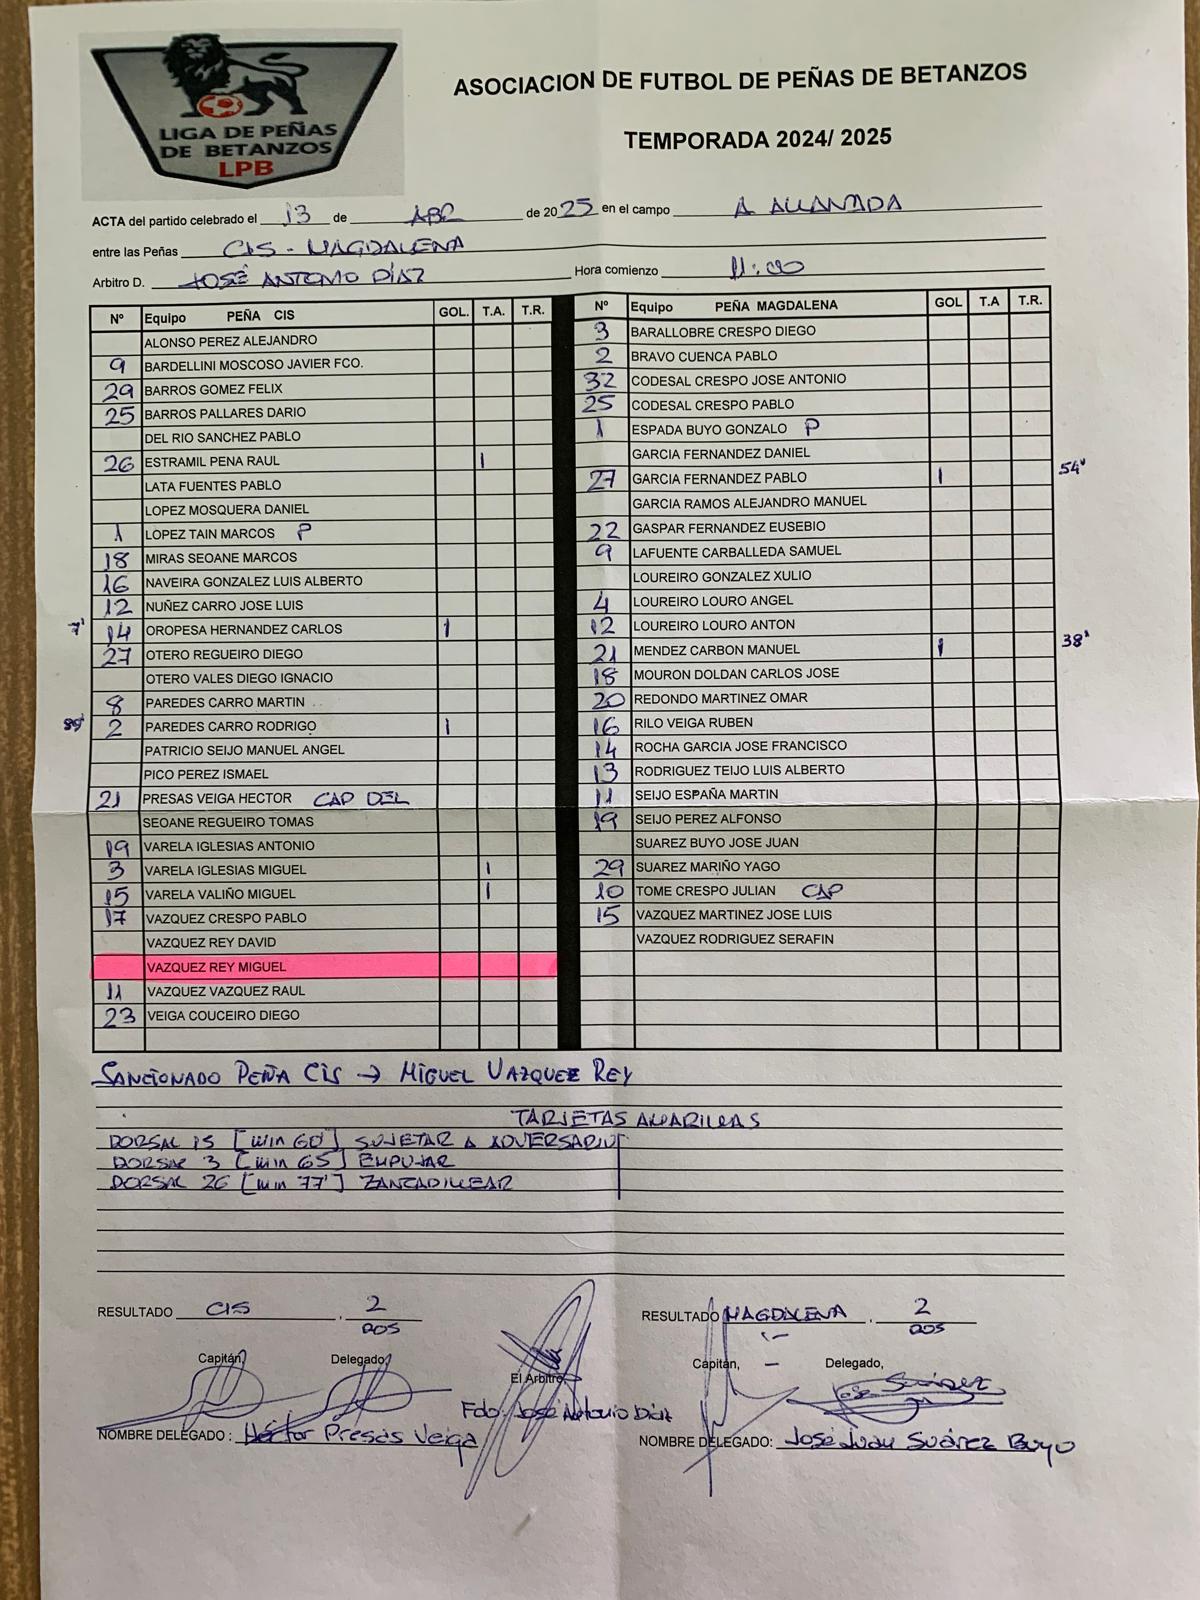 LIGA DE PEÑAS
DE BETANZOS
LPB
ASOCIACION DE FUTBOL DE PEÑAS DE BETANZOS
TEMPORADA 2024/ 2025
ACTA del partido celebrado el 13 de ABR de 2025 en el campo A ALLANADA
entre las Peñas CIS - MAGDALENA
Arbitro D. JOSÉ ANTONIO DÍAZ Hora comienzo 11:00
Nº Equipo PEÑA CIS GOL. T.A. T.R.
ALONSO PEREZ ALEJANDRO
9 BARDELLINI MOSCOSO JAVIER FCO.
29 BARROS GOMEZ FELIX
25 BARROS PALLARES DARIO
DEL RIO SANCHEZ PABLO
26 ESTRAMIL PENA RAUL I
LATA FUENTES PABLO
LOPEZ MOSQUERA DANIEL
1 LOPEZ TAIN MARCOS P
18 MIRAS SEOANE MARCOS
16 NAVEIRA GONZALEZ LUIS ALBERTO
12 NUÑEZ CARRO JOSE LUIS
7' 14 OROPESA HERNANDEZ CARLOS I
27 OTERO REGUEIRO DIEGO
OTERO VALES DIEGO IGNACIO
8 PAREDES CARRO MARTIN
2 PAREDES CARRO RODRIGO I
PATRICIO SEIJO MANUEL ANGEL
PICO PEREZ ISMAEL
21 PRESAS VEIGA HECTOR CAP DEL
SEOANE REGUEIRO TOMAS
19 VARELA IGLESIAS ANTONIO
3 VARELA IGLESIAS MIGUEL I
15 VARELA VALIÑO MIGUEL I
17 VAZQUEZ CRESPO PABLO
VAZQUEZ REY DAVID
VAZQUEZ REY MIGUEL
11 VAZQUEZ VAZQUEZ RAUL
23 VEIGA COUCEIRO DIEGO
Nº Equipo PEÑA MAGDALENA GOL T.A T.R.
3 BARALLOBRE CRESPO DIEGO
2 BRAVO CUENCA PABLO
32 CODESAL CRESPO JOSE ANTONIO
25 CODESAL CRESPO PABLO
1 ESPADA BUYO GONZALO P
GARCIA FERNANDEZ DANIEL
27 GARCIA FERNANDEZ PABLO I 54'
GARCIA RAMOS ALEJANDRO MANUEL
22 GASPAR FERNANDEZ EUSEBIO
9 LAFUENTE CARBALLEDA SAMUEL
LOUREIRO GONZALEZ XULIO
4 LOUREIRO LOURO ANGEL
12 LOUREIRO LOURO ANTON
21 MENDEZ CARBON MANUEL I 38'
18 MOURON DOLDAN CARLOS JOSE
20 REDONDO MARTINEZ OMAR
16 RILO VEIGA RUBEN
14 ROCHA GARCIA JOSE FRANCISCO
13 RODRIGUEZ TEIJO LUIS ALBERTO
11 SEIJO ESPAÑA MARTIN
19 SEIJO PEREZ ALFONSO
SUAREZ BUYO JOSE JUAN
29 SUAREZ MARIÑO YAGO
10 TOME CRESPO JULIAN CAP
15 VAZQUEZ MARTINEZ JOSE LUIS
VAZQUEZ RODRIGUEZ SERAFIN
SANCIONADO PEÑA CIS → MIGUEL VAZQUEZ REY
TARJETAS AMARILLAS
DORSAL 15 [min 60'] SUJETAR A ADVERSARIO
DORSAL 3 [min 65'] EMPUJAR
DORSAL 26 [min 77'] ZANCADILLEAR
RESULTADO CIS . 2 RESULTADO MAGDALENA . 2
DOS DOS
Capitán, Delegado, El Arbitro, Capitán, Delegado,
José Suárez
Fdo: José Antonio Díaz
NOMBRE DELEGADO : Héctor Presas Veiga NOMBRE DELEGADO: José Juan Suárez Buyo